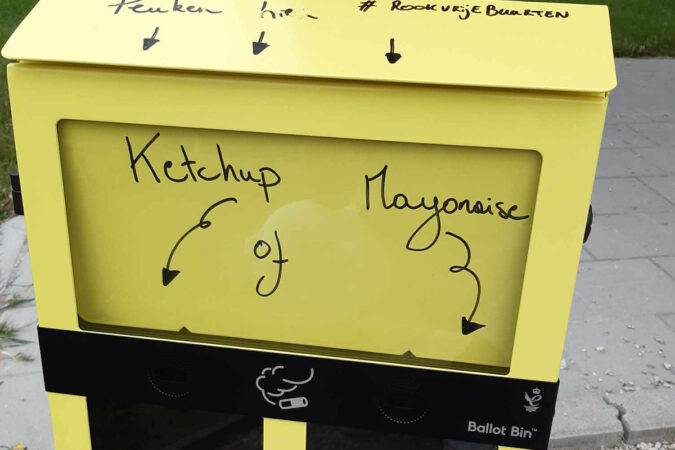 Peuken hier #ROOKVRIJEBUURTEN
Ketchup
Mayonaise
of
Ballot Bin™